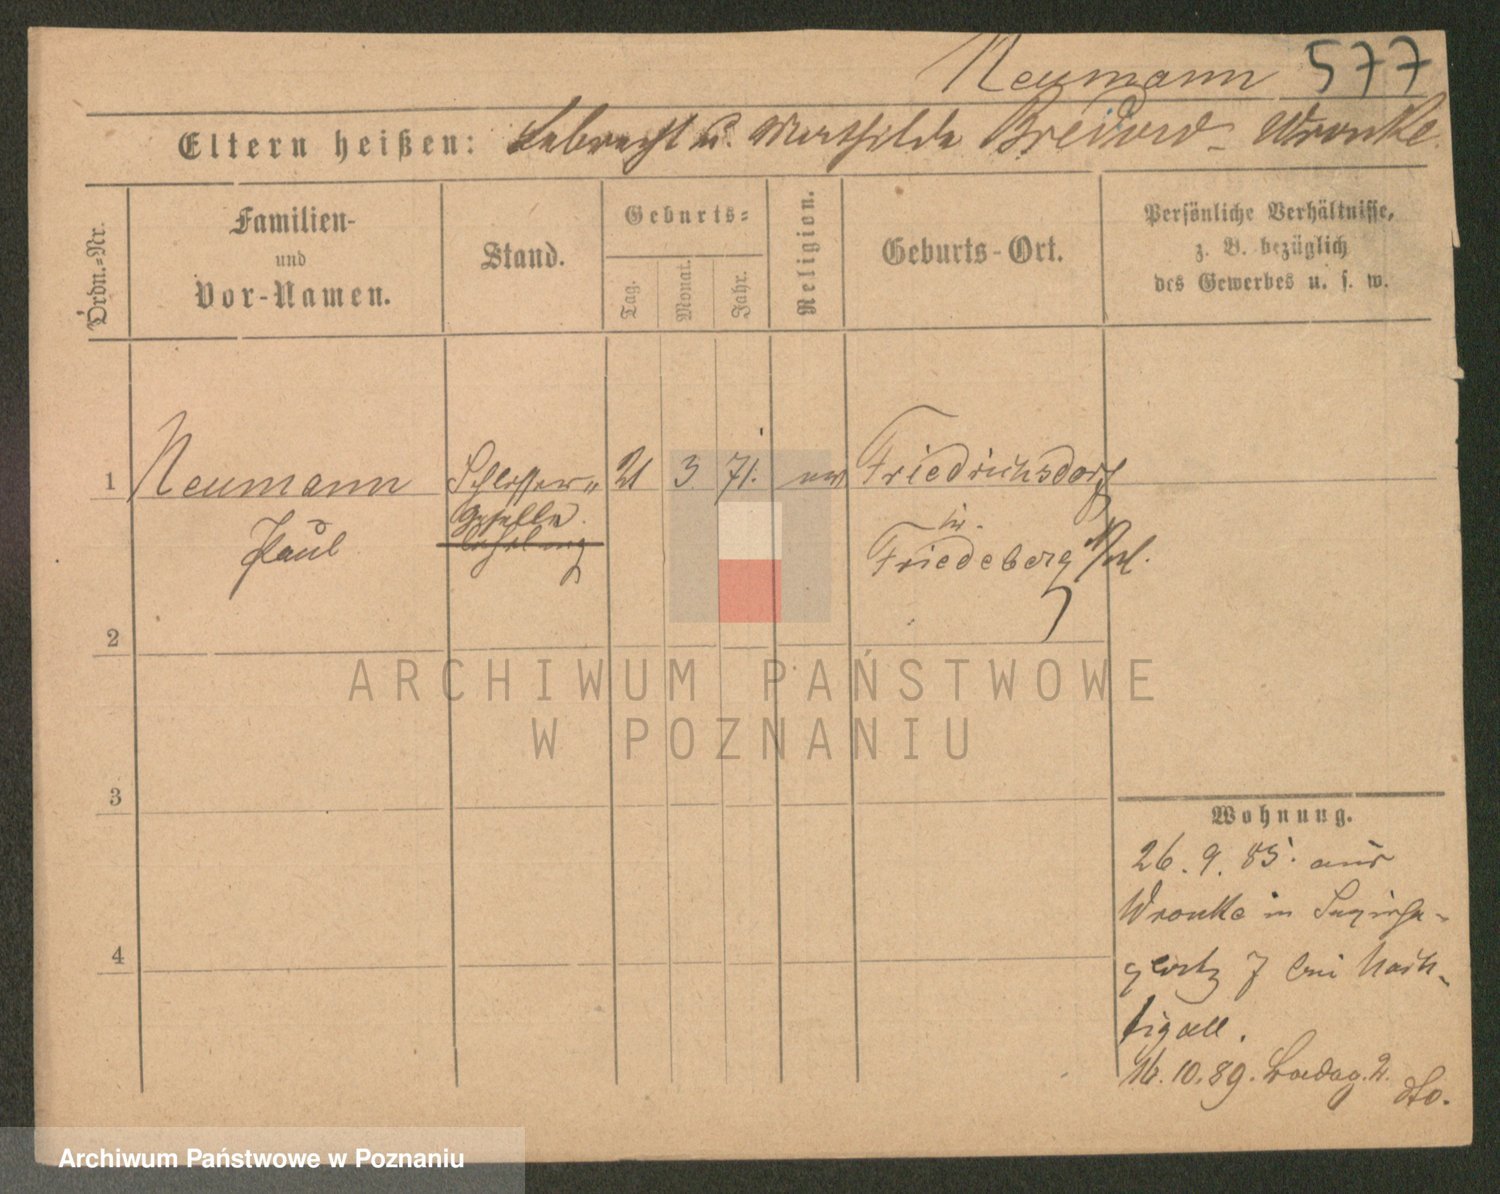 Neumann 577
Eltern heißen: Lebrecht u. Mathilde Wronke.
Ordn.-Nr.
Familien-
und
Vor-Namen.
Stand.
Geburts-
Tag.
Monat.
Jahr.
Religion.
Geburts-Ort.
Persönliche Verhältnisse,
z. B. bezüglich
des Gewerbes u. s. w.
1 Neumann Schlosser 21 3 71. ev Friedrichsdorf
Geselle in
Paul Lehrling Friedeberg N/M.
2
3
4
Wohnung.
26. 9. 85. aus
Wronke in Sapieha-
platz 7 bei Nach-
tigall.
16. 10. 89. 2. dto.
ARCHIWUM PAŃSTWOWE
W POZNANIU
Archiwum Państwowe w Poznaniu